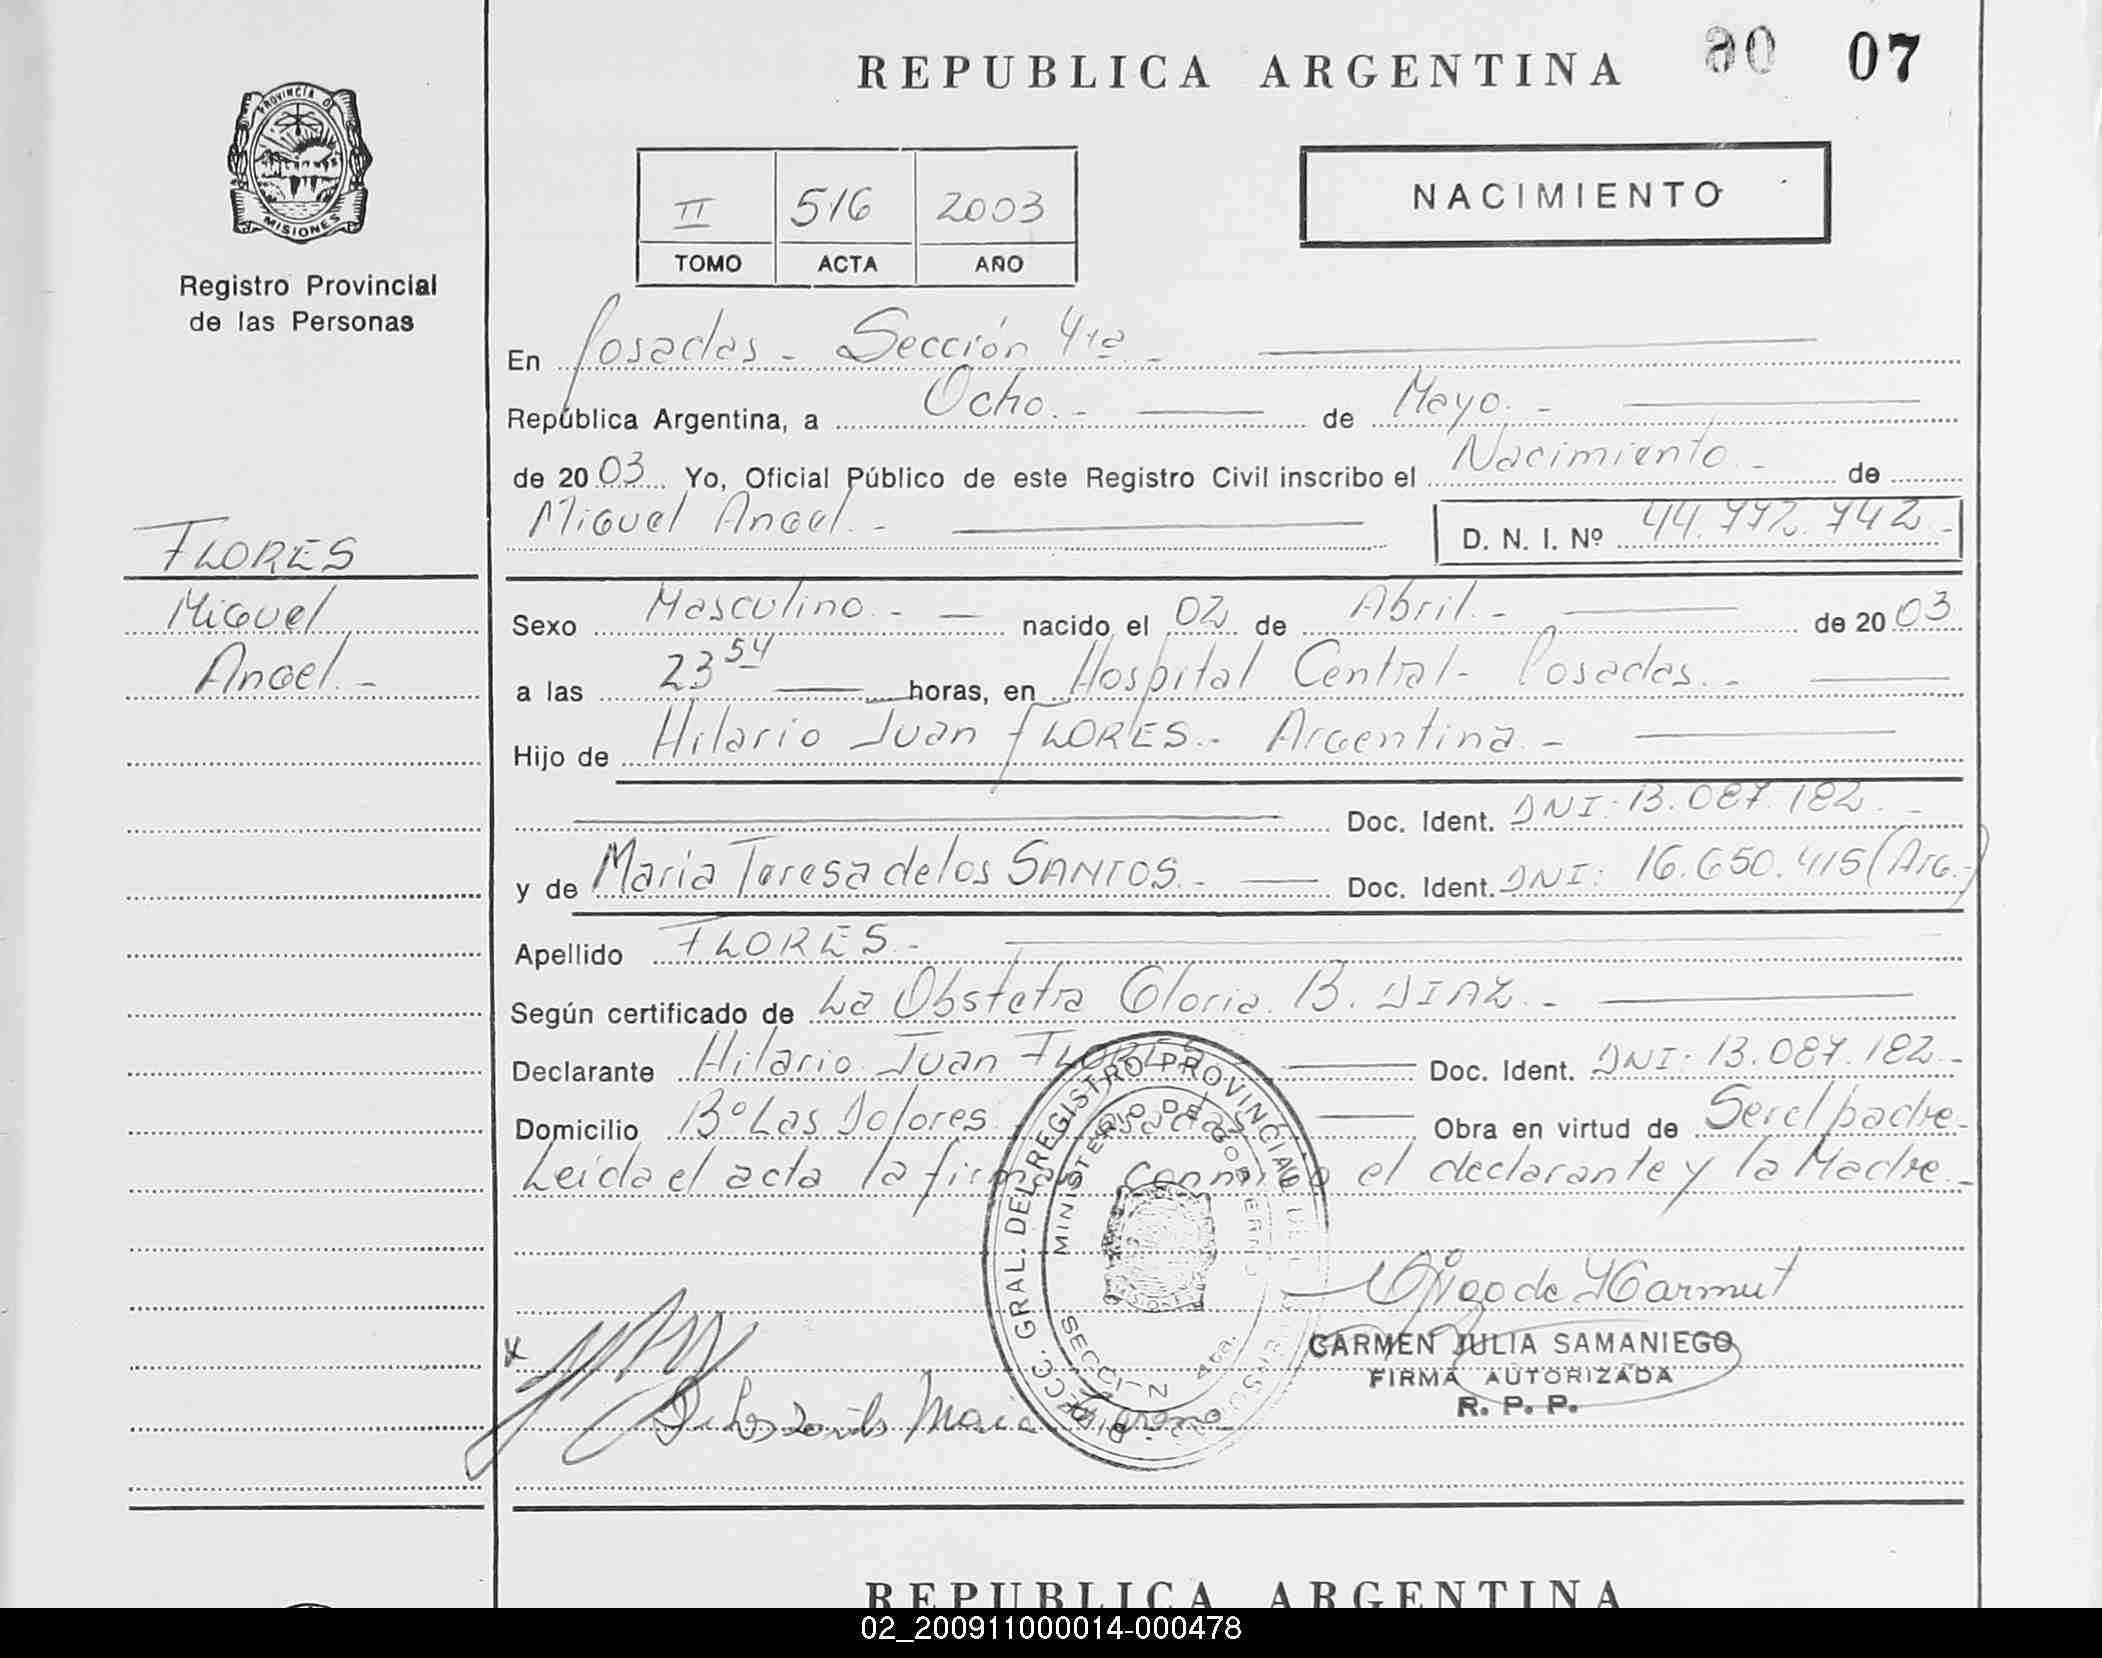 REPUBLICA ARGENTINA 07
PROVINCIA D MISIONES
Registro Provincial
de las Personas
II 516 2003
TOMO ACTA AÑO
NACIMIENTO
En Posadas - Sección 4ta -
República Argentina, a Ocho. - de Mayo. -
de 2003 Yo, Oficial Público de este Registro Civil inscribo el Nacimiento - de
Miguel Angel. - D. N. I. Nº 44.772.742 -
FLORES
Miguel
Angel. -
Sexo Masculino. - nacido el 02 de Abril. - de 2003
a las 23 54 horas, en Hospital Central - Posadas. -
Hijo de Hilario Juan FLORES. - Argentina. -
Doc. Ident. DNI: 13.087.182. -
y de Maria Teresa de los SANTOS. - Doc. Ident. DNI: 16.650.415 (Arg.-)
Apellido FLORES. -
Según certificado de La Obstetra Gloria B. DIAZ. -
Declarante Hilario Juan FLORES Doc. Ident. DNI: 13.087.182 -
Domicilio Bº Las Dolores Posadas Obra en virtud de Ser el padre -
Leída el acta la firman conmigo el declarante y la Madre. -
DIRECC. GRAL. DEL REGISTRO PROVINCIAL DE
MINISTERIO DE GOBIERNO
SECCI N 4ta.
CARMEN JULIA SAMANIEGO
FIRMA AUTORIZADA
R. P. P.
x
De Los Maria
REPUBLICA ARGENTINA
02_200911000014-000478